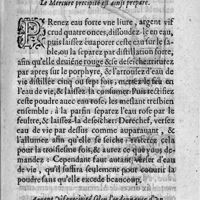 Le Mercure precipité est ainsi preparé.
PRenez eau forte vne liure, argent vif
cinq ou quatre onces, dissoudez le en eau,
puis laissez euaporer ceste eau sur le sa-
ble ou la separez par distillation forte,
afin qu'elle deuiene rouge & se desseiche: triturez
par apres sur le porphyre, & l'arrousez d'eau
de vie distillee cinq ou sept fois, mettez le en
l'eau de vie, & laissez consumer. Puis rectifiez
ceste poudre auec eau rose, les meslant tresbien
ensemble, à la parfin separez l'eau rose par le
feutre, & laissez-la desseicher: Derechef, versez
eau de vie par dessus comme auparauant, &
l'allumez afin qu'elle se seiche: reïterez cela
pour la troisiesme fois, & aurez ce que vous de-
mandez: Cependant faut autant verser d'eau
de vie, qu'il suffira seulement pour couurir la
poudre sans qu'elle excede beaucoup.